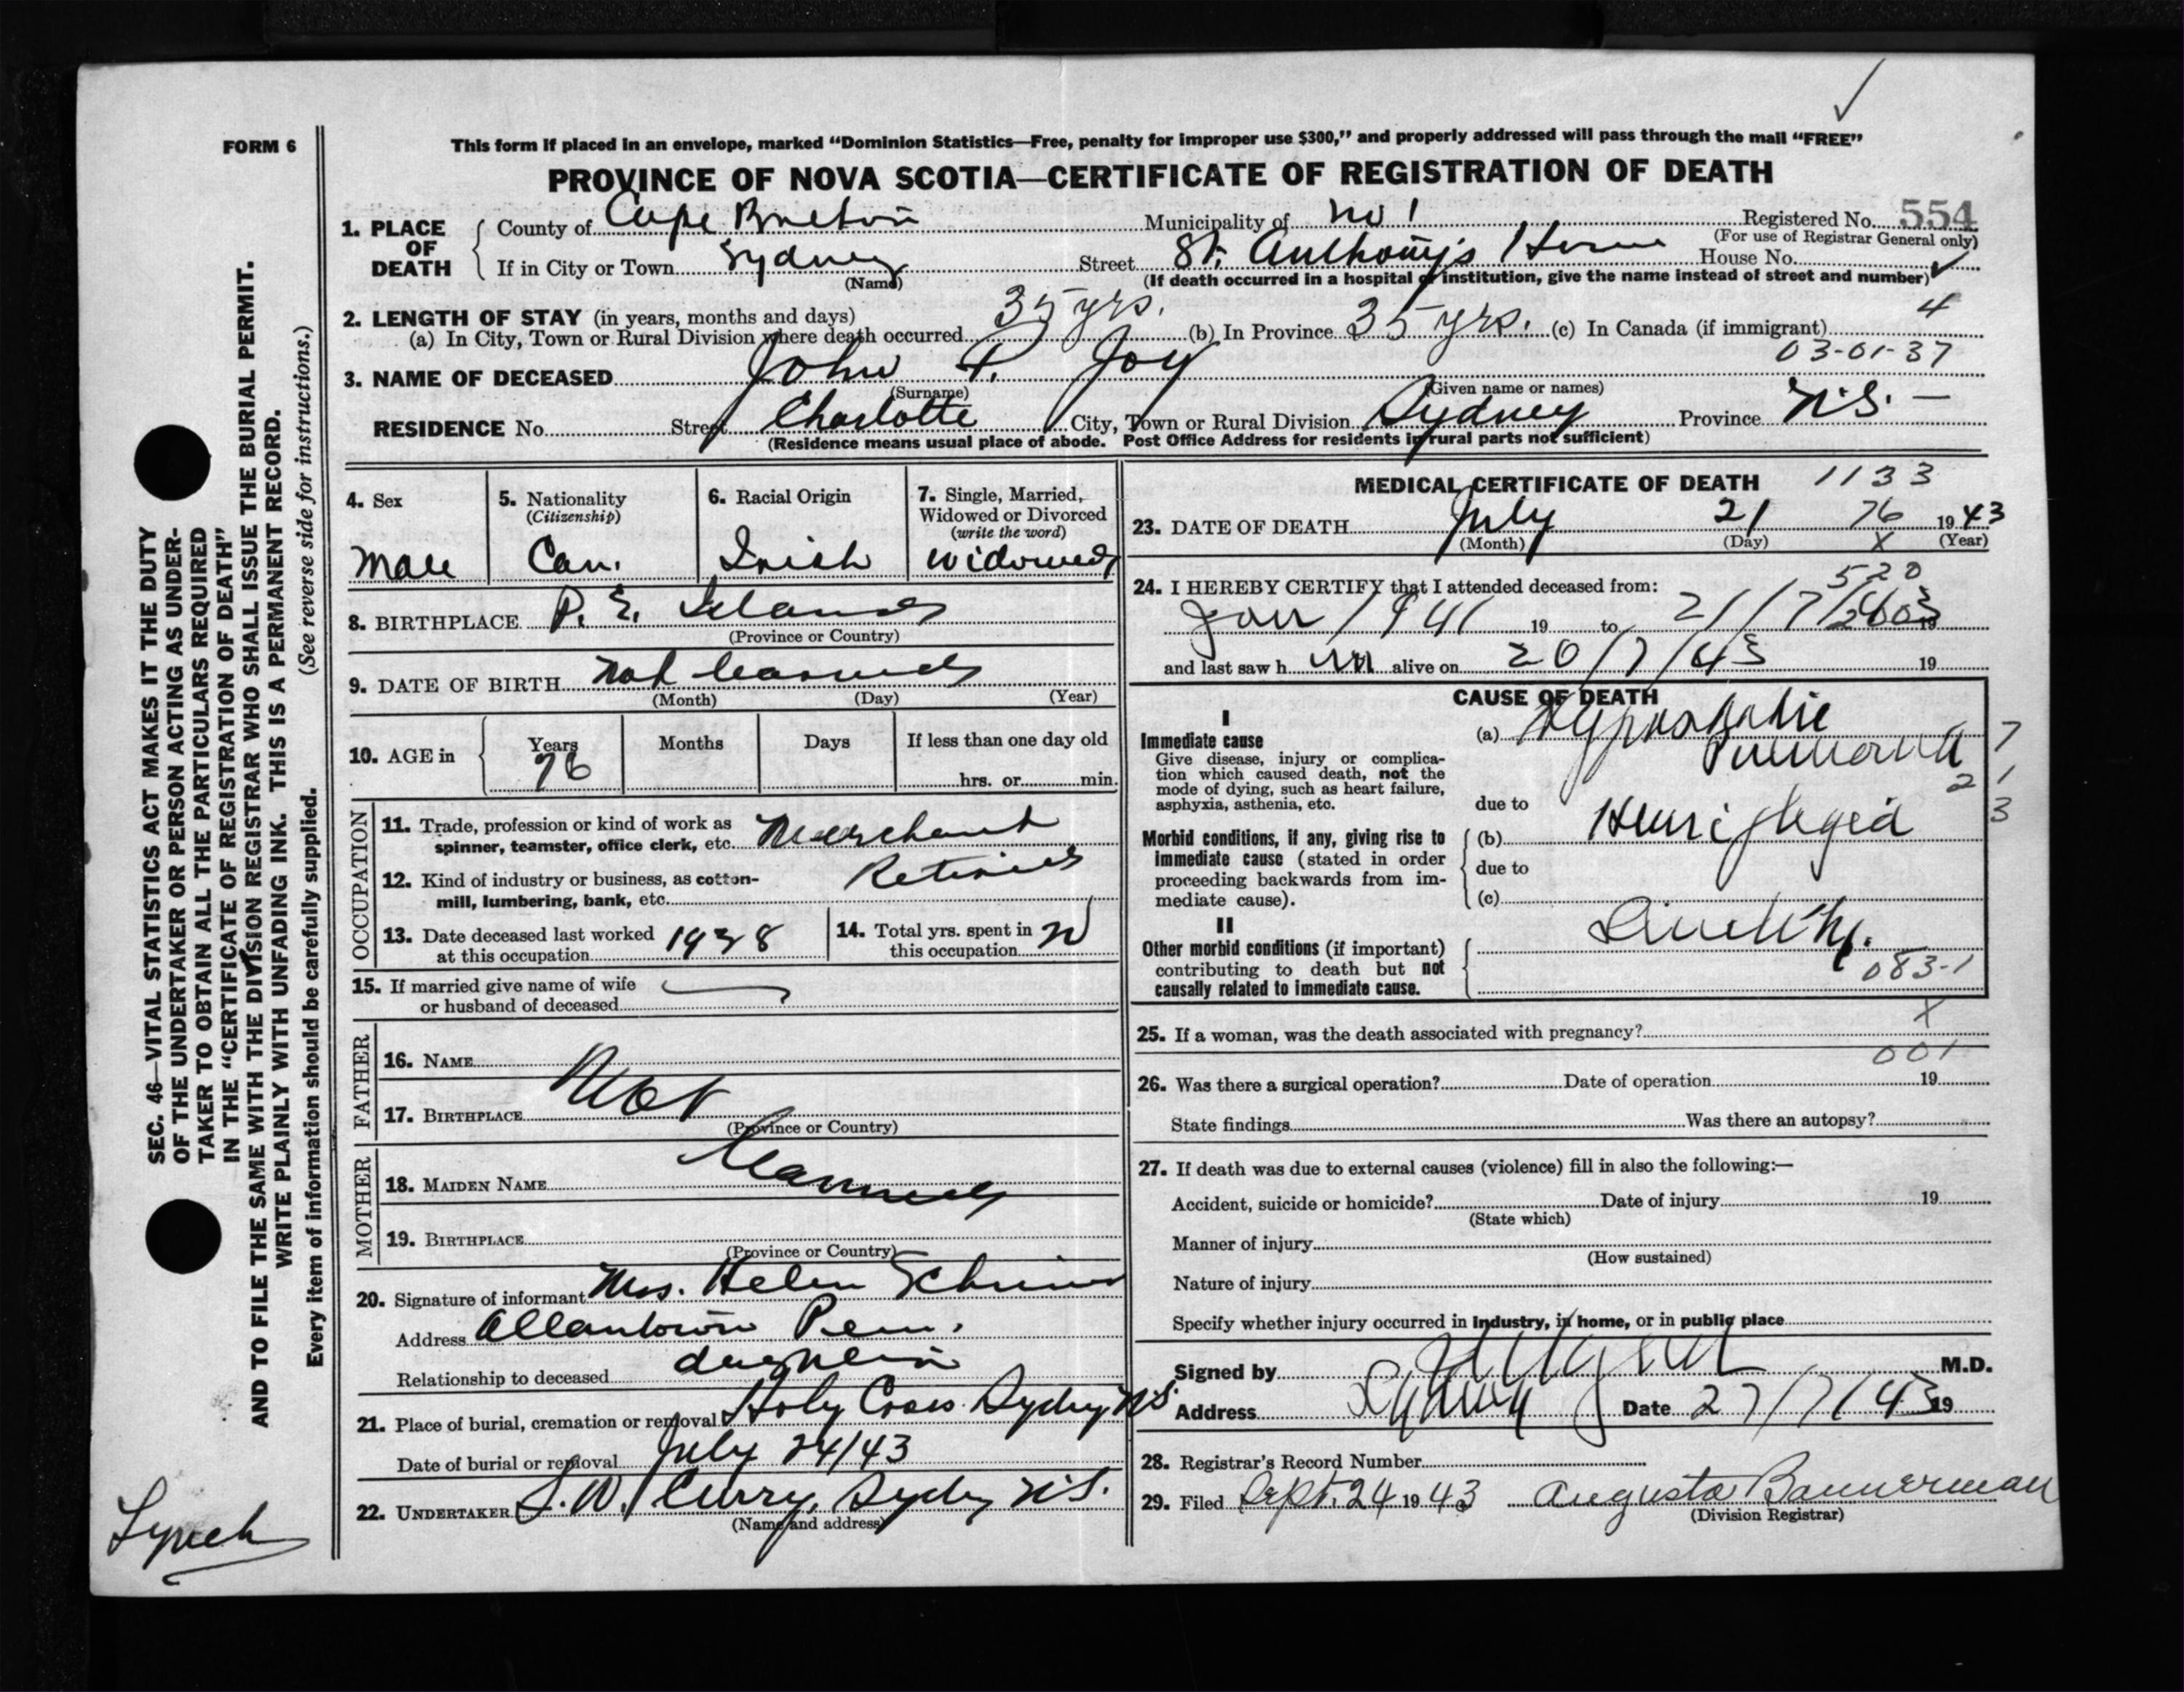 FORM 6
This form if placed in an envelope, marked “Dominion Statistics—Free, penalty for improper use $300,” and properly addressed will pass through the mail “FREE”
PROVINCE OF NOVA SCOTIA—CERTIFICATE OF REGISTRATION OF DEATH
1. PLACE OF DEATH
County of Cape Breton Municipality of No 1 Registered No. 554
(For use of Registrar General only)
If in City or Town Sydney Street St. Anthony's Home House No.
(Name) (If death occurred in a hospital or institution, give the name instead of street and number)
2. LENGTH OF STAY (in years, months and days)
(a) In City, Town or Rural Division where death occurred 35 yrs. (b) In Province 35 yrs. (c) In Canada (if immigrant) 4
03-01-37
3. NAME OF DECEASED John Joy
(Surname) (Given name or names)
RESIDENCE No. Street Charlotte City, Town or Rural Division Sydney Province N.S. —
(Residence means usual place of abode. Post Office Address for residents in rural parts not sufficient)
4. Sex
Male
5. Nationality
(Citizenship)
Can.
6. Racial Origin
Irish
7. Single, Married, Widowed or Divorced
(write the word)
Widowed
8. BIRTHPLACE P. E. Island
(Province or Country)
9. DATE OF BIRTH Not learned
(Month) (Day) (Year)
10. AGE in Years Months Days If less than one day old
76 hrs. or min.
OCCUPATION
11. Trade, profession or kind of work as
spinner, teamster, office clerk, etc. Merchant
12. Kind of industry or business, as cotton-
mill, lumbering, bank, etc. Retired
13. Date deceased last worked
at this occupation 1938
14. Total yrs. spent in
this occupation
15. If married give name of wife
or husband of deceased
FATHER
16. NAME
17. BIRTHPLACE Not
(Province or Country)
MOTHER
18. MAIDEN NAME learned
19. BIRTHPLACE
(Province or Country)
20. Signature of informant Mrs. Helen
Address Allantown Penn.
Relationship to deceased daughter
21. Place of burial, cremation or removal Holy Cross Sydney N.S.
Date of burial or removal July 24/43
22. UNDERTAKER W. Curry, Sydney N.S.
(Name and address)
MEDICAL CERTIFICATE OF DEATH 1133
23. DATE OF DEATH July 21 76 1943
(Month) (Day) X (Year)
24. I HEREBY CERTIFY that I attended deceased from: 520
Jan 1941 19 to 21/7/ 19
and last saw h im alive on 20/7/43 19
CAUSE OF DEATH
I
Immediate cause
Give disease, injury or complica-
tion which caused death, not the
mode of dying, such as heart failure,
asphyxia, asthenia, etc.
(a) Hypostatic
Pneumonia 7
2 1
3
due to
Morbid conditions, if any, giving rise to
immediate cause (stated in order
proceeding backwards from im-
mediate cause).
(b) Hemiplegia
due to
(c)
II
Other morbid conditions (if important)
contributing to death but not
causally related to immediate cause.
Senility.
083-1
X
25. If a woman, was the death associated with pregnancy?
001
26. Was there a surgical operation? Date of operation 19
State findings Was there an autopsy?
27. If death was due to external causes (violence) fill in also the following:—
Accident, suicide or homicide? Date of injury 19
(State which)
Manner of injury
(How sustained)
Nature of injury
Specify whether injury occurred in industry, in home, or in public place
Signed by M.D.
Address Sydney Date 27/7/43 19
28. Registrar's Record Number
29. Filed Sept. 24 1943 Augusta Bannerman
(Division Registrar)
SEC. 46—VITAL STATISTICS ACT MAKES IT THE DUTY
OF THE UNDERTAKER OR PERSON ACTING AS UNDER-
TAKER TO OBTAIN ALL THE PARTICULARS REQUIRED
IN THE “CERTIFICATE OF REGISTRATION OF DEATH”
AND TO FILE THE SAME WITH THE DIVISION REGISTRAR WHO SHALL ISSUE THE BURIAL PERMIT.
WRITE PLAINLY WITH UNFADING INK. THIS IS A PERMANENT RECORD.
Every item of information should be carefully supplied. (See reverse side for instructions.)
Lynch